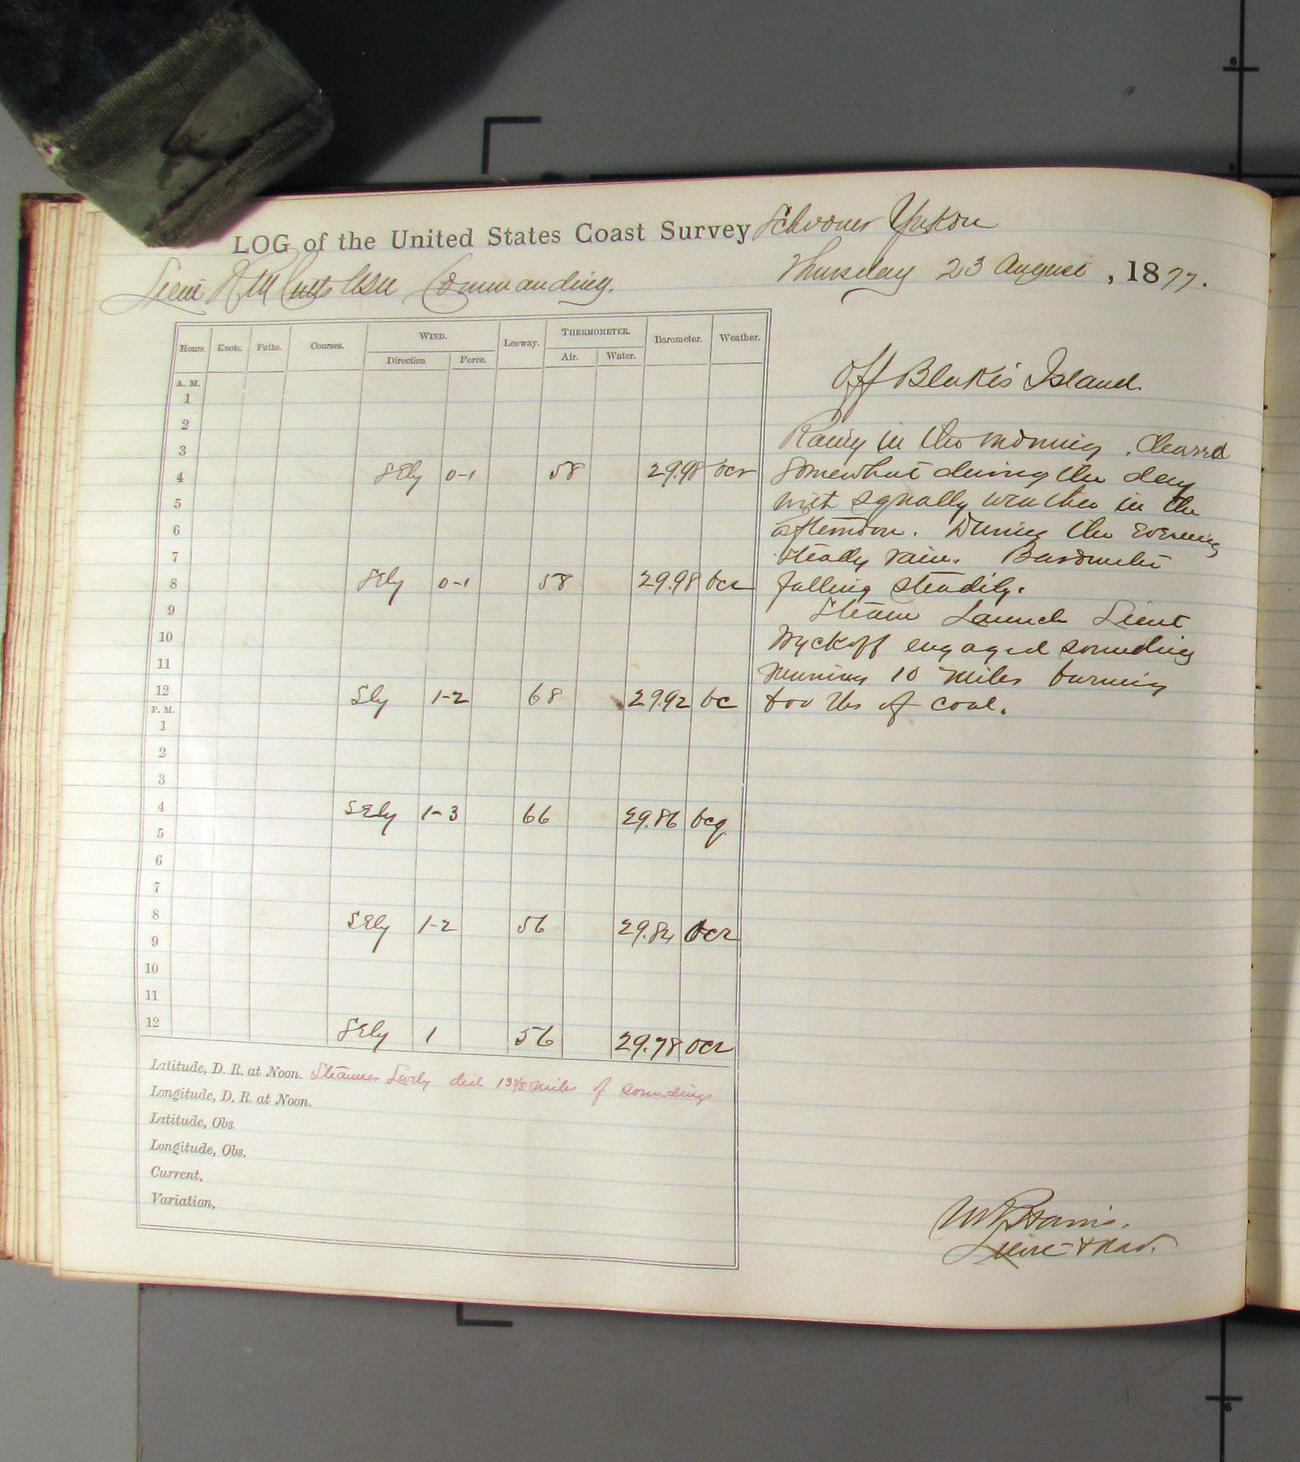 LOG of the United States Coast Survey Schooner Yukon
Lieut R M Cutts USN Commanding.
Thursday 23 August, 1877.
Hours. Knots. Faths. Courses. WIND. Leeway. THERMOMETER. Barometer. Weather.
Direction Force. Air. Water.
A. M.
1
2
3
4 SEly 0-1 58 29.98 ocr
5
6
7
8 SEly 0-1 58 29.98 ocr
9
10
11
12 Sly 1-2 68 29.92 bc
P. M.
1
2
3
4 SEly 1-3 66 29.86 bcq
5
6
7
8 SEly 1-2 56 29.84 ocr
9
10
11
12 SEly 1 56 29.78 ocr
Latitude, D. R. at Noon. Steamer Lively did 13 3/8 miles of soundings
Longitude, D. R. at Noon.
Latitude, Obs.
Longitude, Obs.
Current,
Variation,
Off Blakes Island.
Rainy in the morning. Cleared
somewhat during the day
with squally weather in the
afternoon. During the evening
steady rain. Barometer
falling steadily.
Steam Launch Lieut
Wyckoff engaged sounding
running 10 miles burning
lbs of coal.
Harris.
Lieut & Nav.
6
6